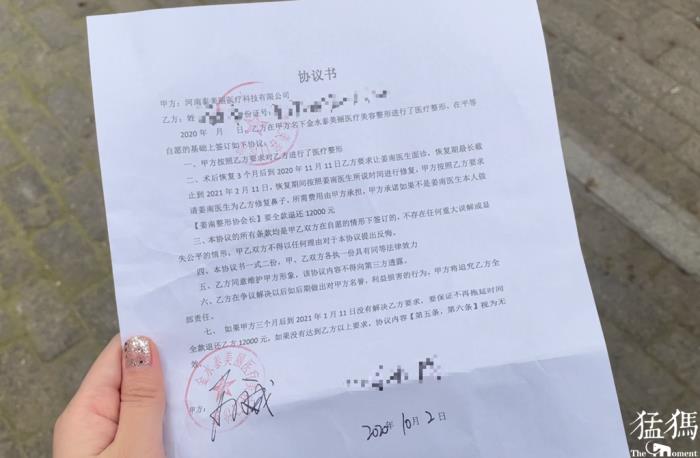 协议书
甲方：河南泰美丽医疗科技有限公司
乙方：姓 份证号：
2020 年 月 日，乙方在甲方名下金水泰美丽医疗美容整形进行了医疗整形，在平等
自愿的基础上签订如下协议。
一、甲方按照乙方要求对乙方进行了医疗整形
二、术后恢复 3 个月后到 2020 年 11 月 11 日乙方要求让姜南医生面诊，恢复期最长截
止到 2021 年 2 月 11 日，恢复期间按照姜南医生所说时间进行修复，甲方按照乙方要求
请姜南医生为乙方修复鼻子，所需费用由甲方承担，甲方承诺如果不是姜南医生本人做
【姜南整形协会长】要全款退还 12000 元
三、本协议的所有条款均是甲乙双方在自愿的情形下签订的，不存在任何重大误解或显
失公平的情形，甲乙双方不得以任何理由对于本协议提出反悔。
四、本协议书一式二份，甲、乙双方各执一份具有同等法律效力
五、乙方同意维护甲方形象，该协议内容不得向第三方透露。
六、乙方在争议解决以后如后期做出对甲方名誉，利益损害的行为，甲方将追究乙方全
部责任。
七、如果甲方三个月后到 2021 年 1 月 11 日没有解决乙方要求，要保证不再拖延时间
全款退还乙方 12000 元，如果没有达到乙方以上要求，协议内容【第五条，第六条】视为无
效。
金水泰美丽医疗
甲方：
2020年 10月 2日
猛犸
The Moment